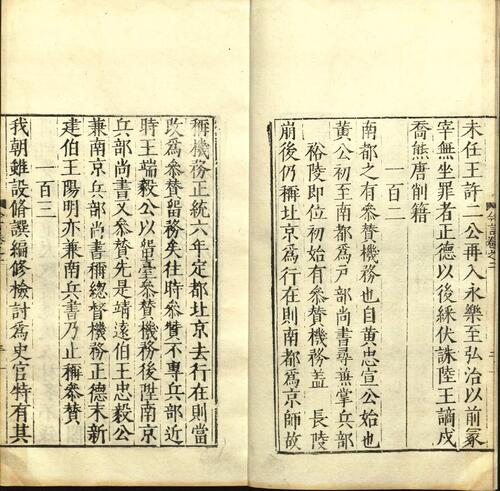 未任王許二公再入永樂至弘治以前冢
宰無坐罪者正德以後綵伏誅陸王謫戍
喬熊唐削籍
一百二
南都之有參贊機務也自黃忠宣公始也
黃公初至南都為戶部尚書尋兼掌兵部
裕陵即位初始有參贊機務蓋 長陵
崩後仍稱北京為行在則南都為京師故
稱機務正統六年定都北京去行在則當
改為參贊留務矣往時參贊不專兵部近
時王端毅公以留臺參贊機務後陞南京
兵部尚書又參贊先是靖遠伯王忠毅公
兼南京兵部尚書稱總督機務正德末新
建伯王陽明亦兼南兵書乃止稱參贊
一百三
我朝雖設脩撰編修檢討為史官特有其